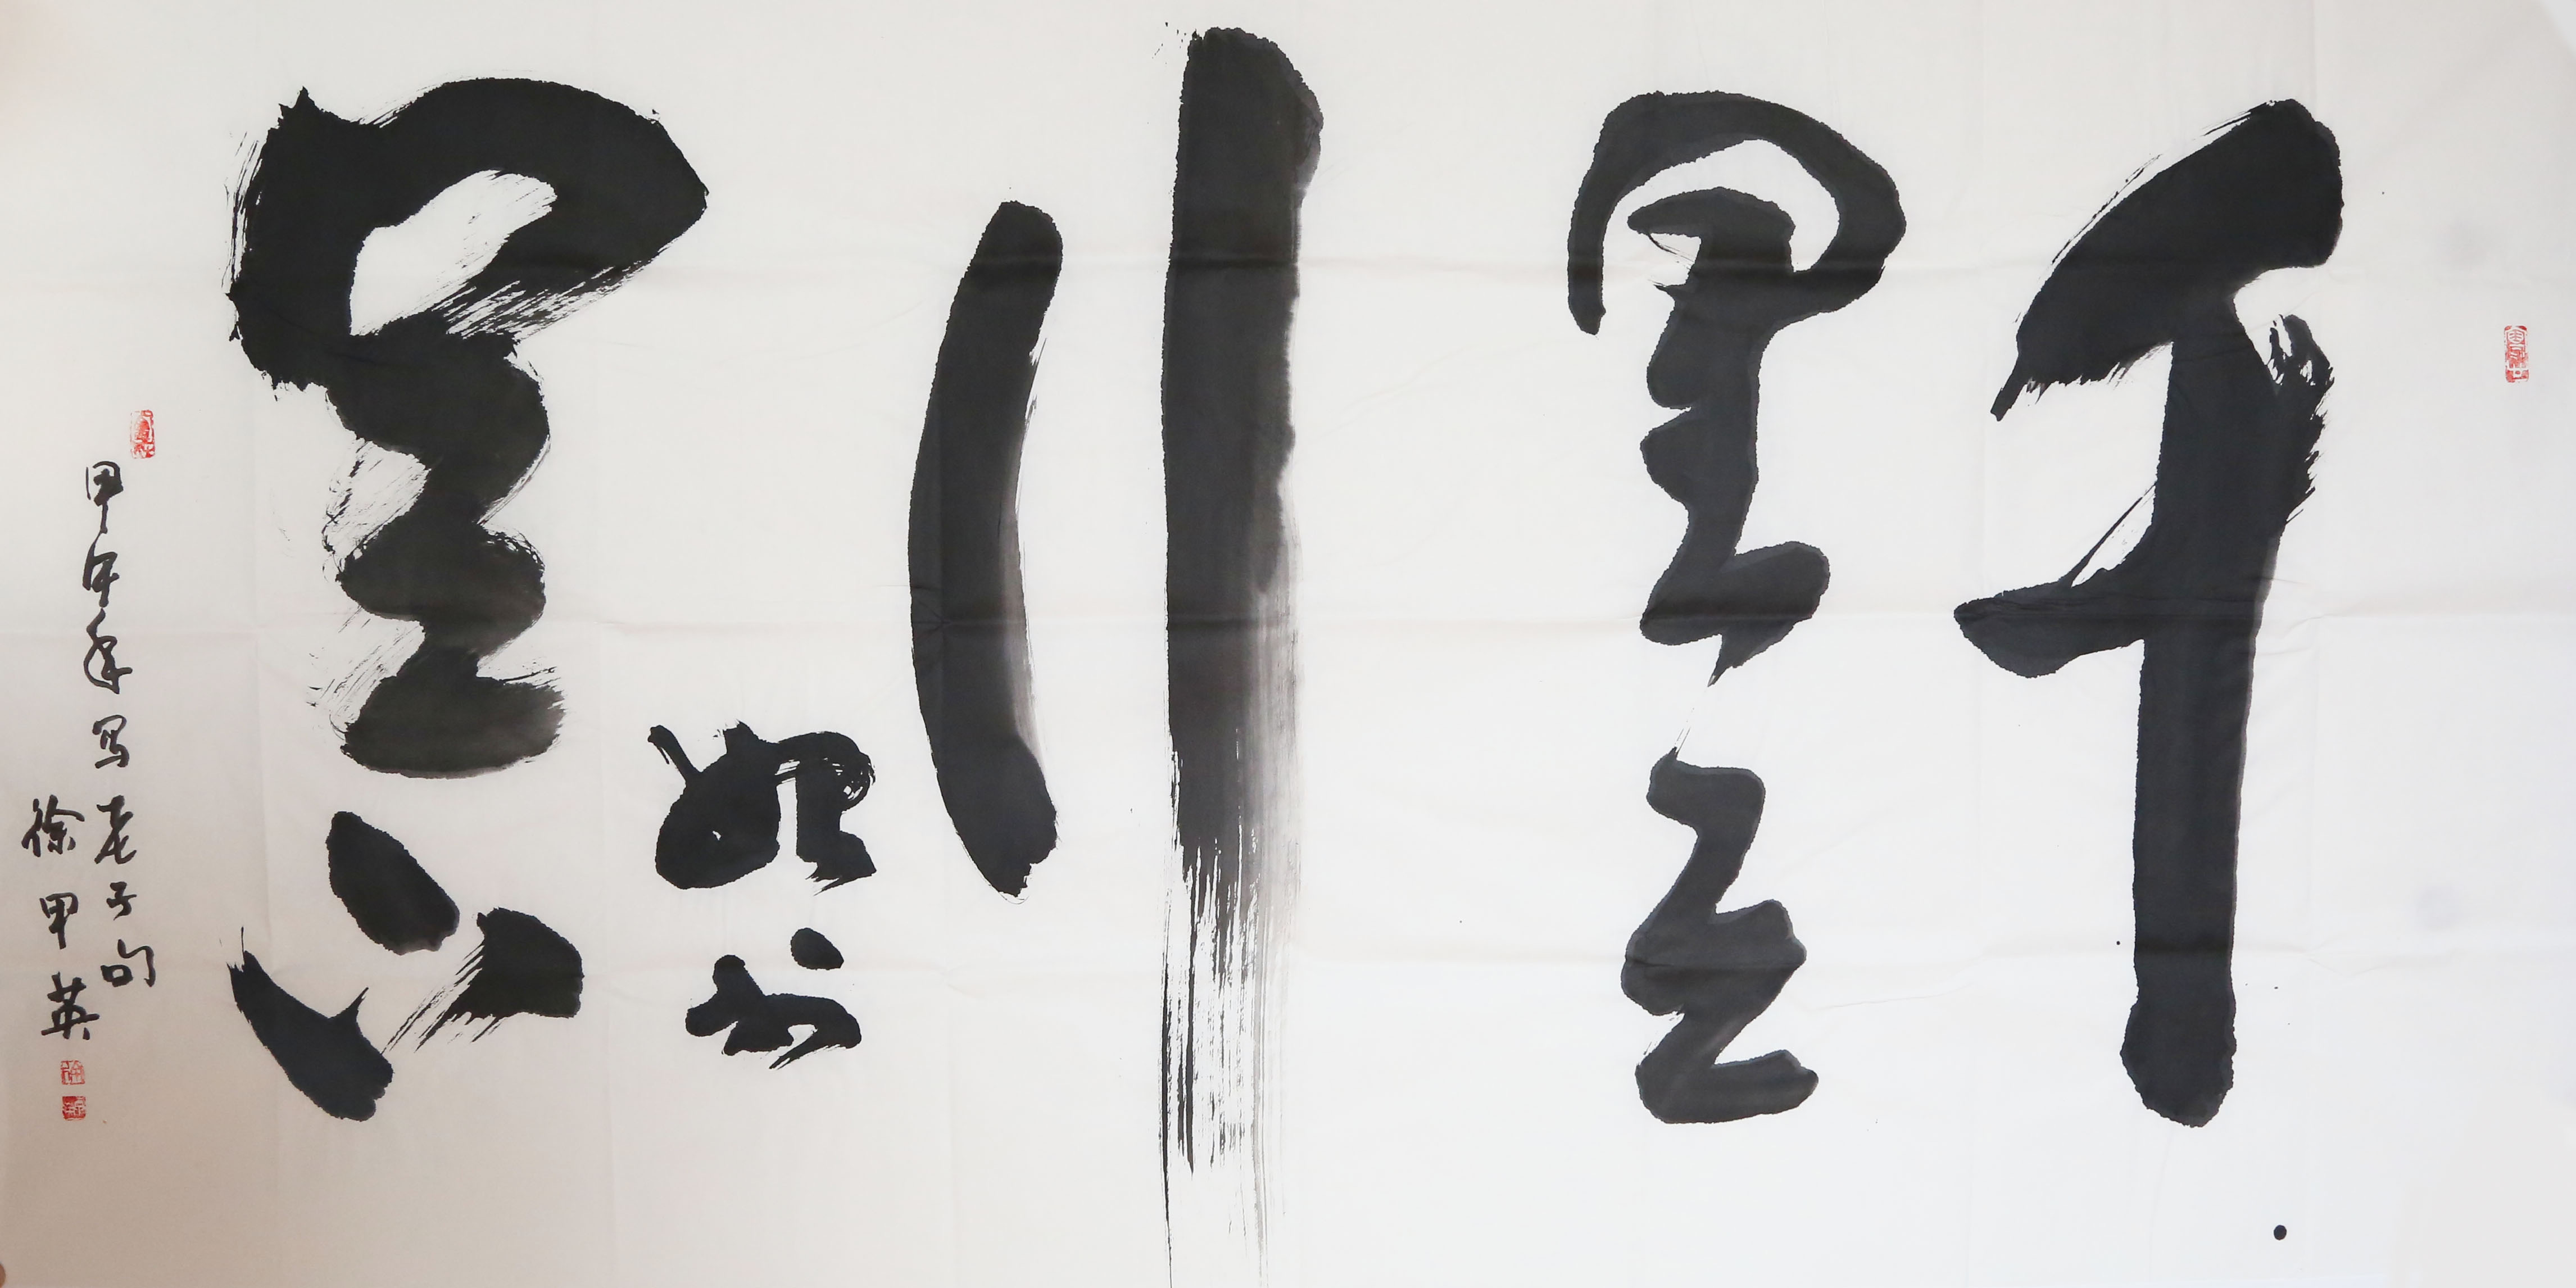 千
里之
行
始於
足下
甲午年写老子句
徐甲英